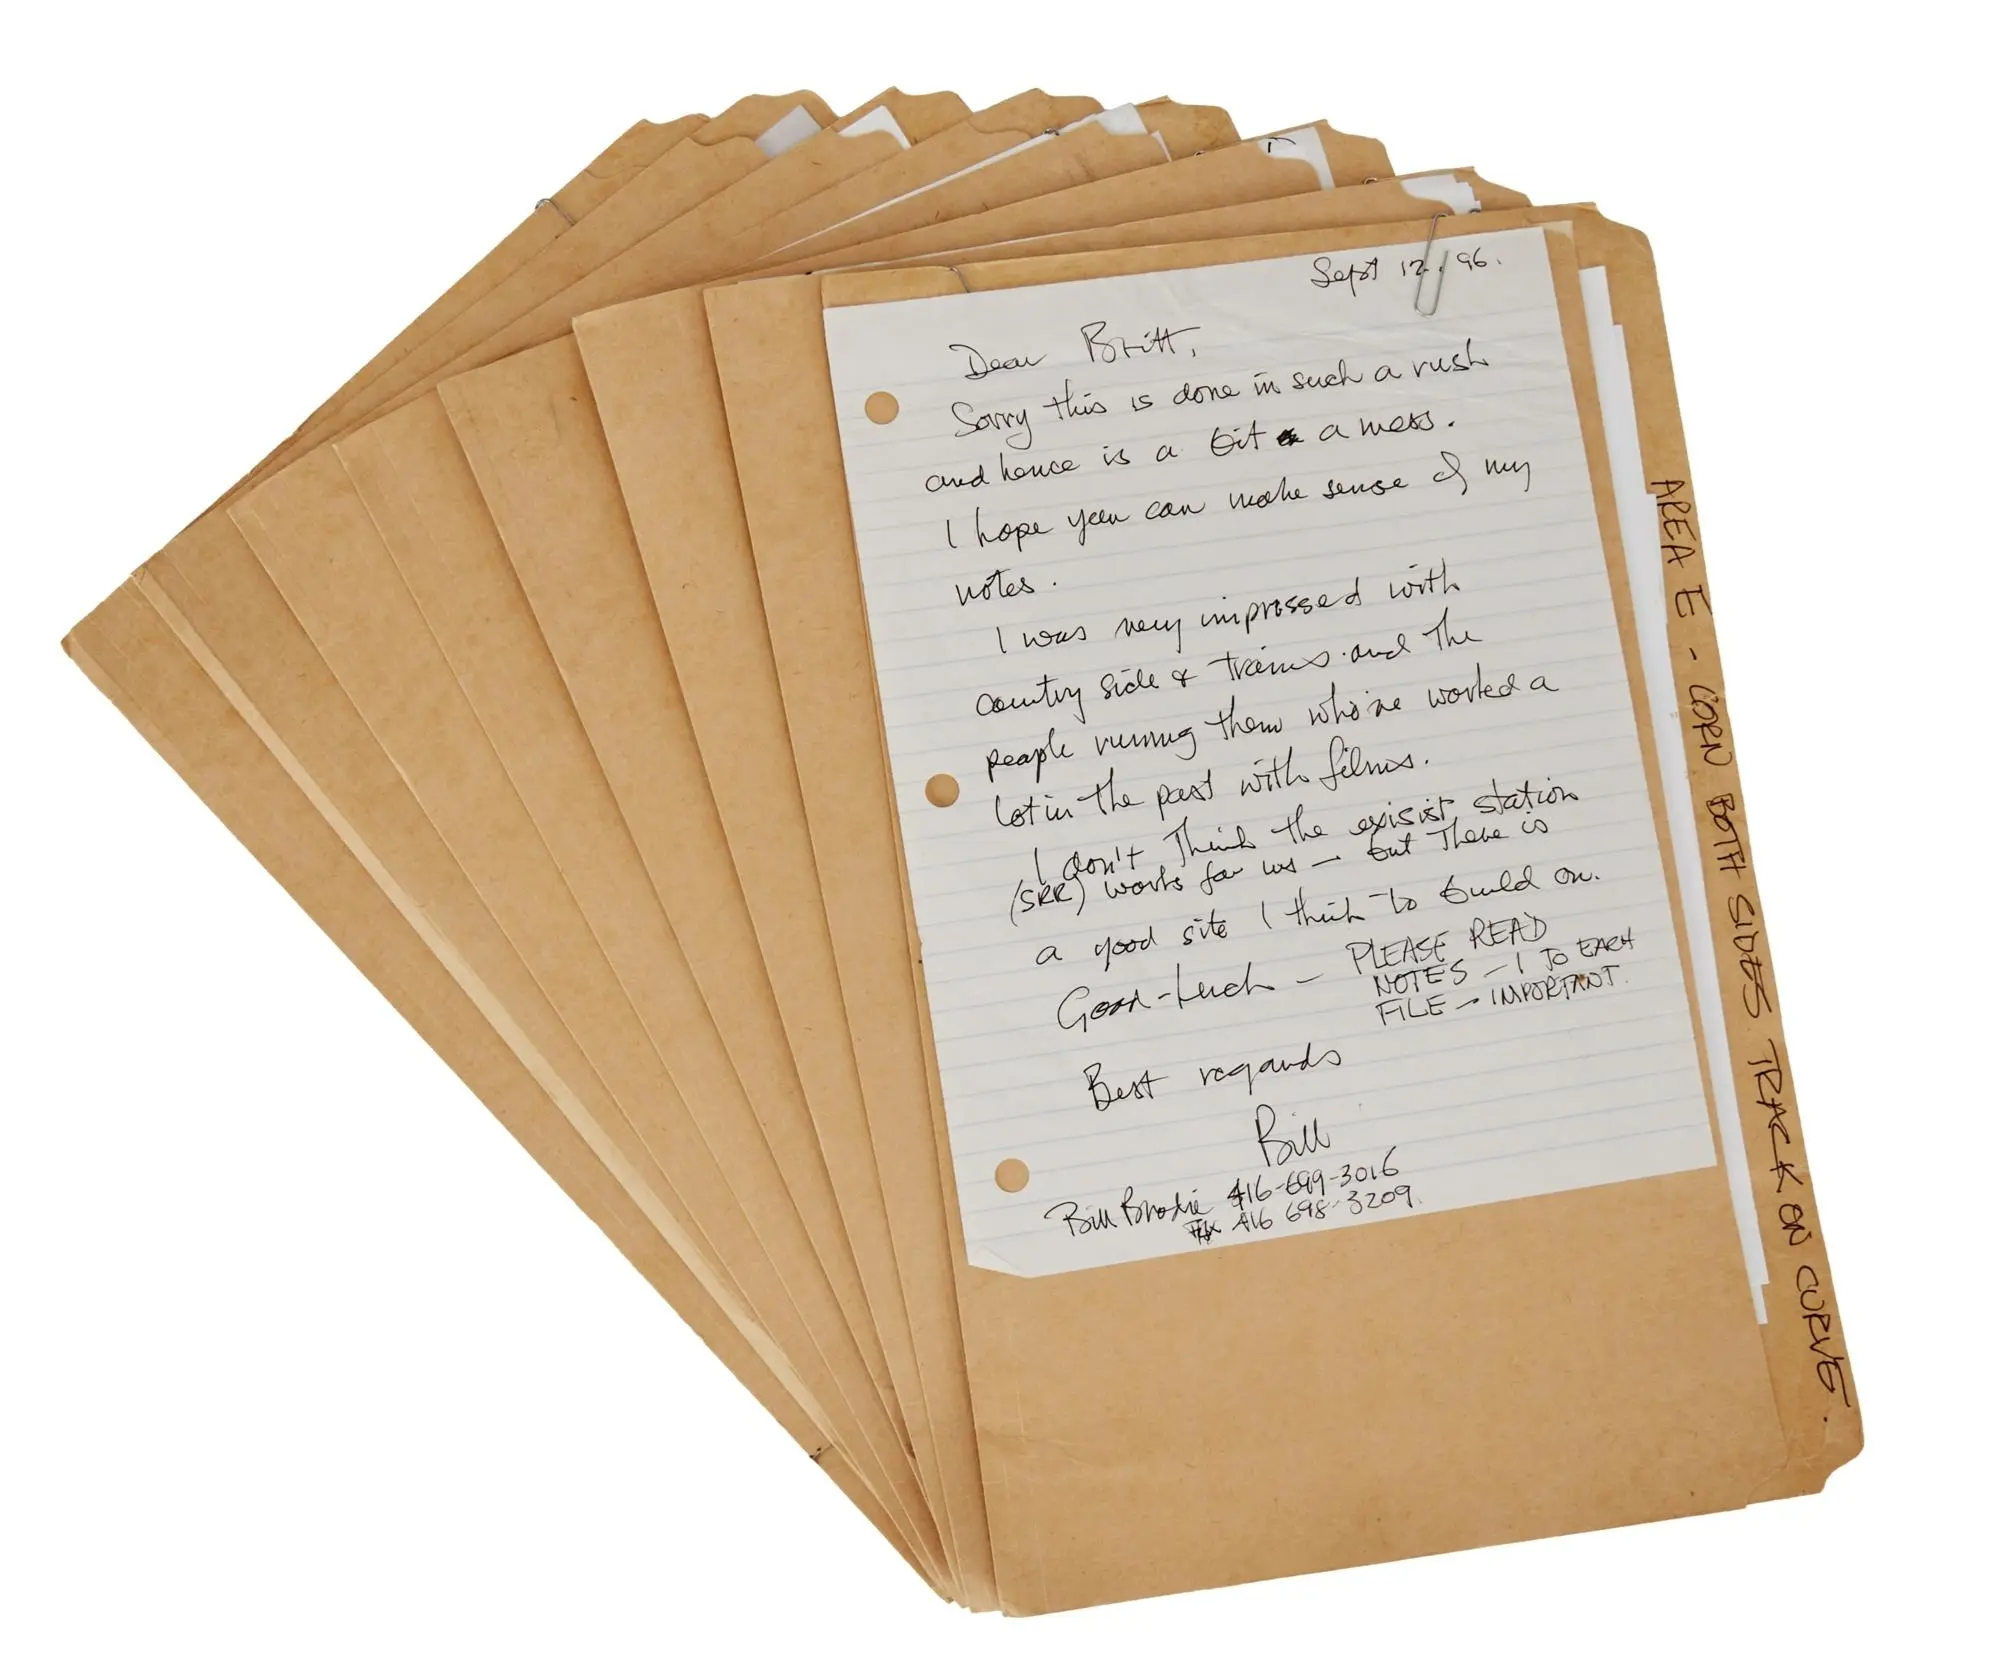 Sept 12, 96.
Dear Britt,
Sorry this is done in such a rush
and hence is a bit a mess.
I hope you can make sense of my
notes.
I was very impressed with
country side & trains and the
people running them who've worked a
lot in the past with films.
I don't think the exisist station
(SRR) works for us - but there is
a good site I think to build on.
Good-luck - PLEASE READ
NOTES - 1 TO EACH
FILE - IMPORTANT.
Best regards
Bill
Bill Brodie 416-699-3016
Fax 416 698-3209.
AREA E - CORN BOTH SIDES TRACK ON CURVE.